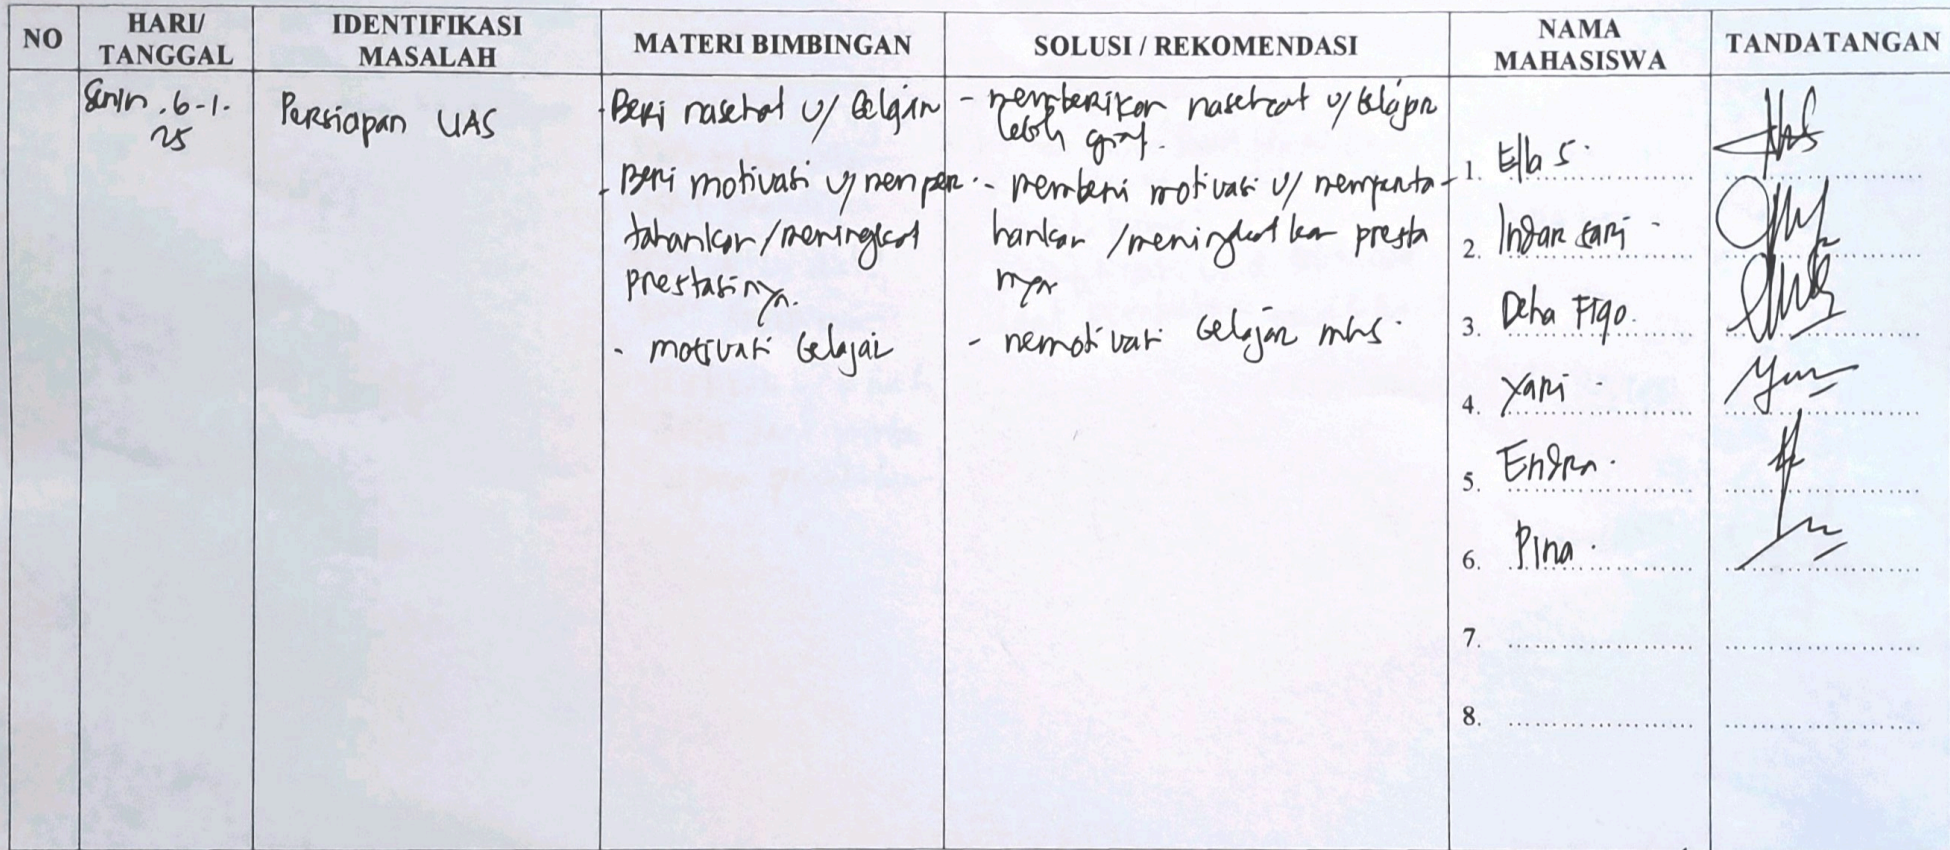 NO
HARI/
TANGGAL
IDENTIFIKASI
MASALAH
MATERI BIMBINGAN
SOLUSI / REKOMENDASI
NAMA
MAHASISWA
TANDATANGAN
Senin, 6-1-
25
Persiapan UAS
- Beri nasehat u/ belajar
- Beri motivasi u/ memper
tahankan/meningkat
prestasinya.
- motivasi belajar
- memberikan nasehat u/ belajar
lebih giat.
- memberi motivasi u/ memperta-
hankan /meningkatkan presta
nya
- memotivasi belajar mhs.
1. Ella S.
2. Indan sari
3. Deha Figo.
4. Yani
5. Endra.
6. Pina.
7.
8.